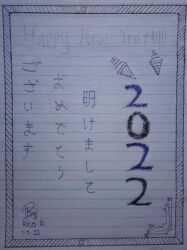 Happy New Year!!!!!
2022
明けまして
おめでとう
ございます
1-1-22